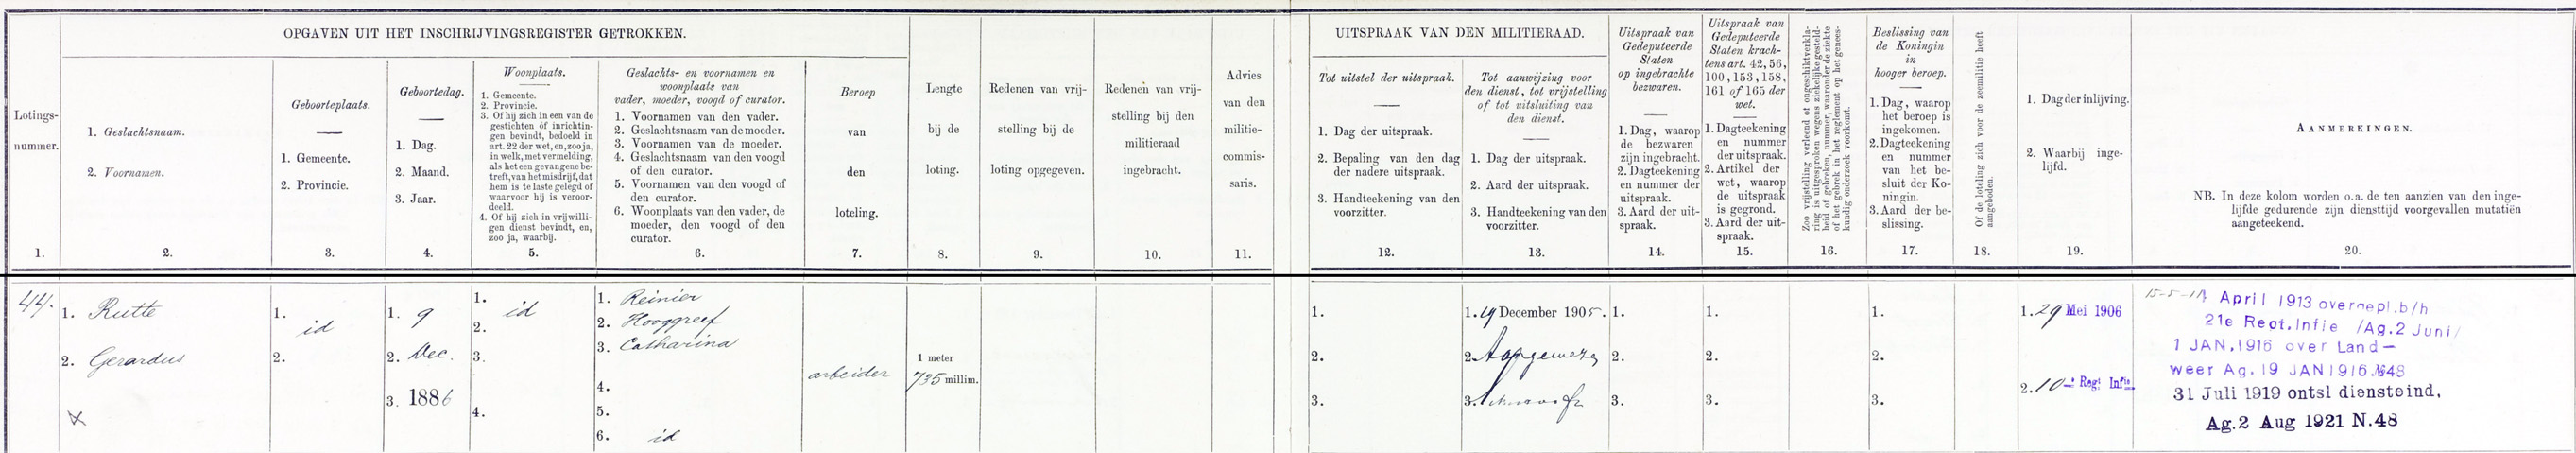 OPGAVEN UIT HET INSCHRIJVINGSREGISTER GETROKKEN.
Lotings-
nummer.
1.
1. Geslachtsnaam.
2. Voornamen.
2.
Geboorteplaats.
1. Gemeente.
2. Provincie.
3.
Geboortedag.
1. Dag.
2. Maand.
3. Jaar.
4.
Woonplaats.
1. Gemeente.
2. Provincie.
3. Of hij zich in een van de
gestichten of inrichtin-
gen bevindt, bedoeld in
art. 22 der wet, en, zoo ja,
in welk, met vermelding,
als het een gevangene be-
treft, van het misdrijf, dat
hem is te laste gelegd of
waarvoor hij is veroor-
deeld.
4. Of hij zich in vrijwilli-
gen dienst bevindt, en,
zoo ja, waarbij.
5.
Geslachts- en voornamen en
woonplaats van
vader, moeder, voogd of curator.
1. Voornamen van den vader.
2. Geslachtsnaam van de moeder.
3. Voornamen van de moeder.
4. Geslachtsnaam van den voogd
of den curator.
5. Voornamen van den voogd of
den curator.
6. Woonplaats van den vader, de
moeder, den voogd of den
curator.
6.
Beroep
van
den
loteling.
7.
Lengte
bij de
loting.
8.
Redenen van vrij-
stelling bij de
loting opgegeven.
9.
Redenen van vrij-
stelling bij den
militieraad
ingebracht.
10.
Advies
van den
militie-
commis-
saris.
11.
UITSPRAAK VAN DEN MILITIERAAD.
Tot uitstel der uitspraak.
1. Dag der uitspraak.
2. Bepaling van den dag
der nadere uitspraak.
3. Handteekening van den
voorzitter.
12.
Tot aanwijzing voor
den dienst, tot vrijstelling
of tot uitsluiting van
den dienst.
1. Dag der uitspraak.
2. Aard der uitspraak.
3. Handteekening van den
voorzitter.
13.
Uitspraak van
Gedeputeerde
Staten
op ingebrachte
bezwaren.
1. Dag, waarop
de bezwaren
zijn ingebracht.
2. Dagteekening
en nummer der
uitspraak.
3. Aard der uit-
spraak.
14.
Uitspraak van
Gedeputeerde
Staten krach-
tens art. 42, 56,
100, 153, 158,
161 of 165 der
wet.
1. Dagteekening
en nummer
der uitspraak.
2. Artikel der
wet, waarop
de uitspraak
is gegrond.
3. Aard der uit-
spraak.
15.
Zoo vrijstelling verleend of ongeschiktverkla-
ring is uitgesproken wegens ziekelijke gesteld-
heid of gebreken, nummer, waaronder de ziekte
of het gebrek in het reglement op het genees-
kundig onderzoek voorkomt.
16.
Beslissing van
de Koningin
in
hooger beroep.
1. Dag, waarop
het beroep is
ingekomen.
2. Dagteekening
en nummer
van het be-
sluit der Ko-
ningin.
3. Aard der be-
slissing.
17.
Of de loteling zich voor de zeemilitie heeft
aangeboden.
18.
1. Dag der inlijving.
2. Waarbij inge-
lijfd.
19.
AANMERKINGEN.
NB. In deze kolom worden o.a. de ten aanzien van den inge-
lijfde gedurende zijn diensttijd voorgevallen mutatiën
aangeteekend.
20.
44.
1. Rutte
2. Gerardus
1.
id
2.
1. 9
2. Dec.
3. 1886
1. id
2.
3.
4.
1. Reinier
2. Hooggreef
3. Catharina
4.
5.
6. id
arbeider
1 meter
735 millim.
1.
2.
3.
1. 19 December 1905.
2. Aangewezen
3.
1.
2.
3.
1.
2.
3.
1.
2.
3.
1. 29 Mei 1906
2. 10e Regt Infie.
April 1913 overgepl. b/h
21e Regt. Infie /Ag. 2 Juni/
1 JAN. 1916 over Land-
weer Ag. 19 JAN 1916 N48
31 Juli 1919 ontsl diensteind.
Ag. 2 Aug 1921 N.48